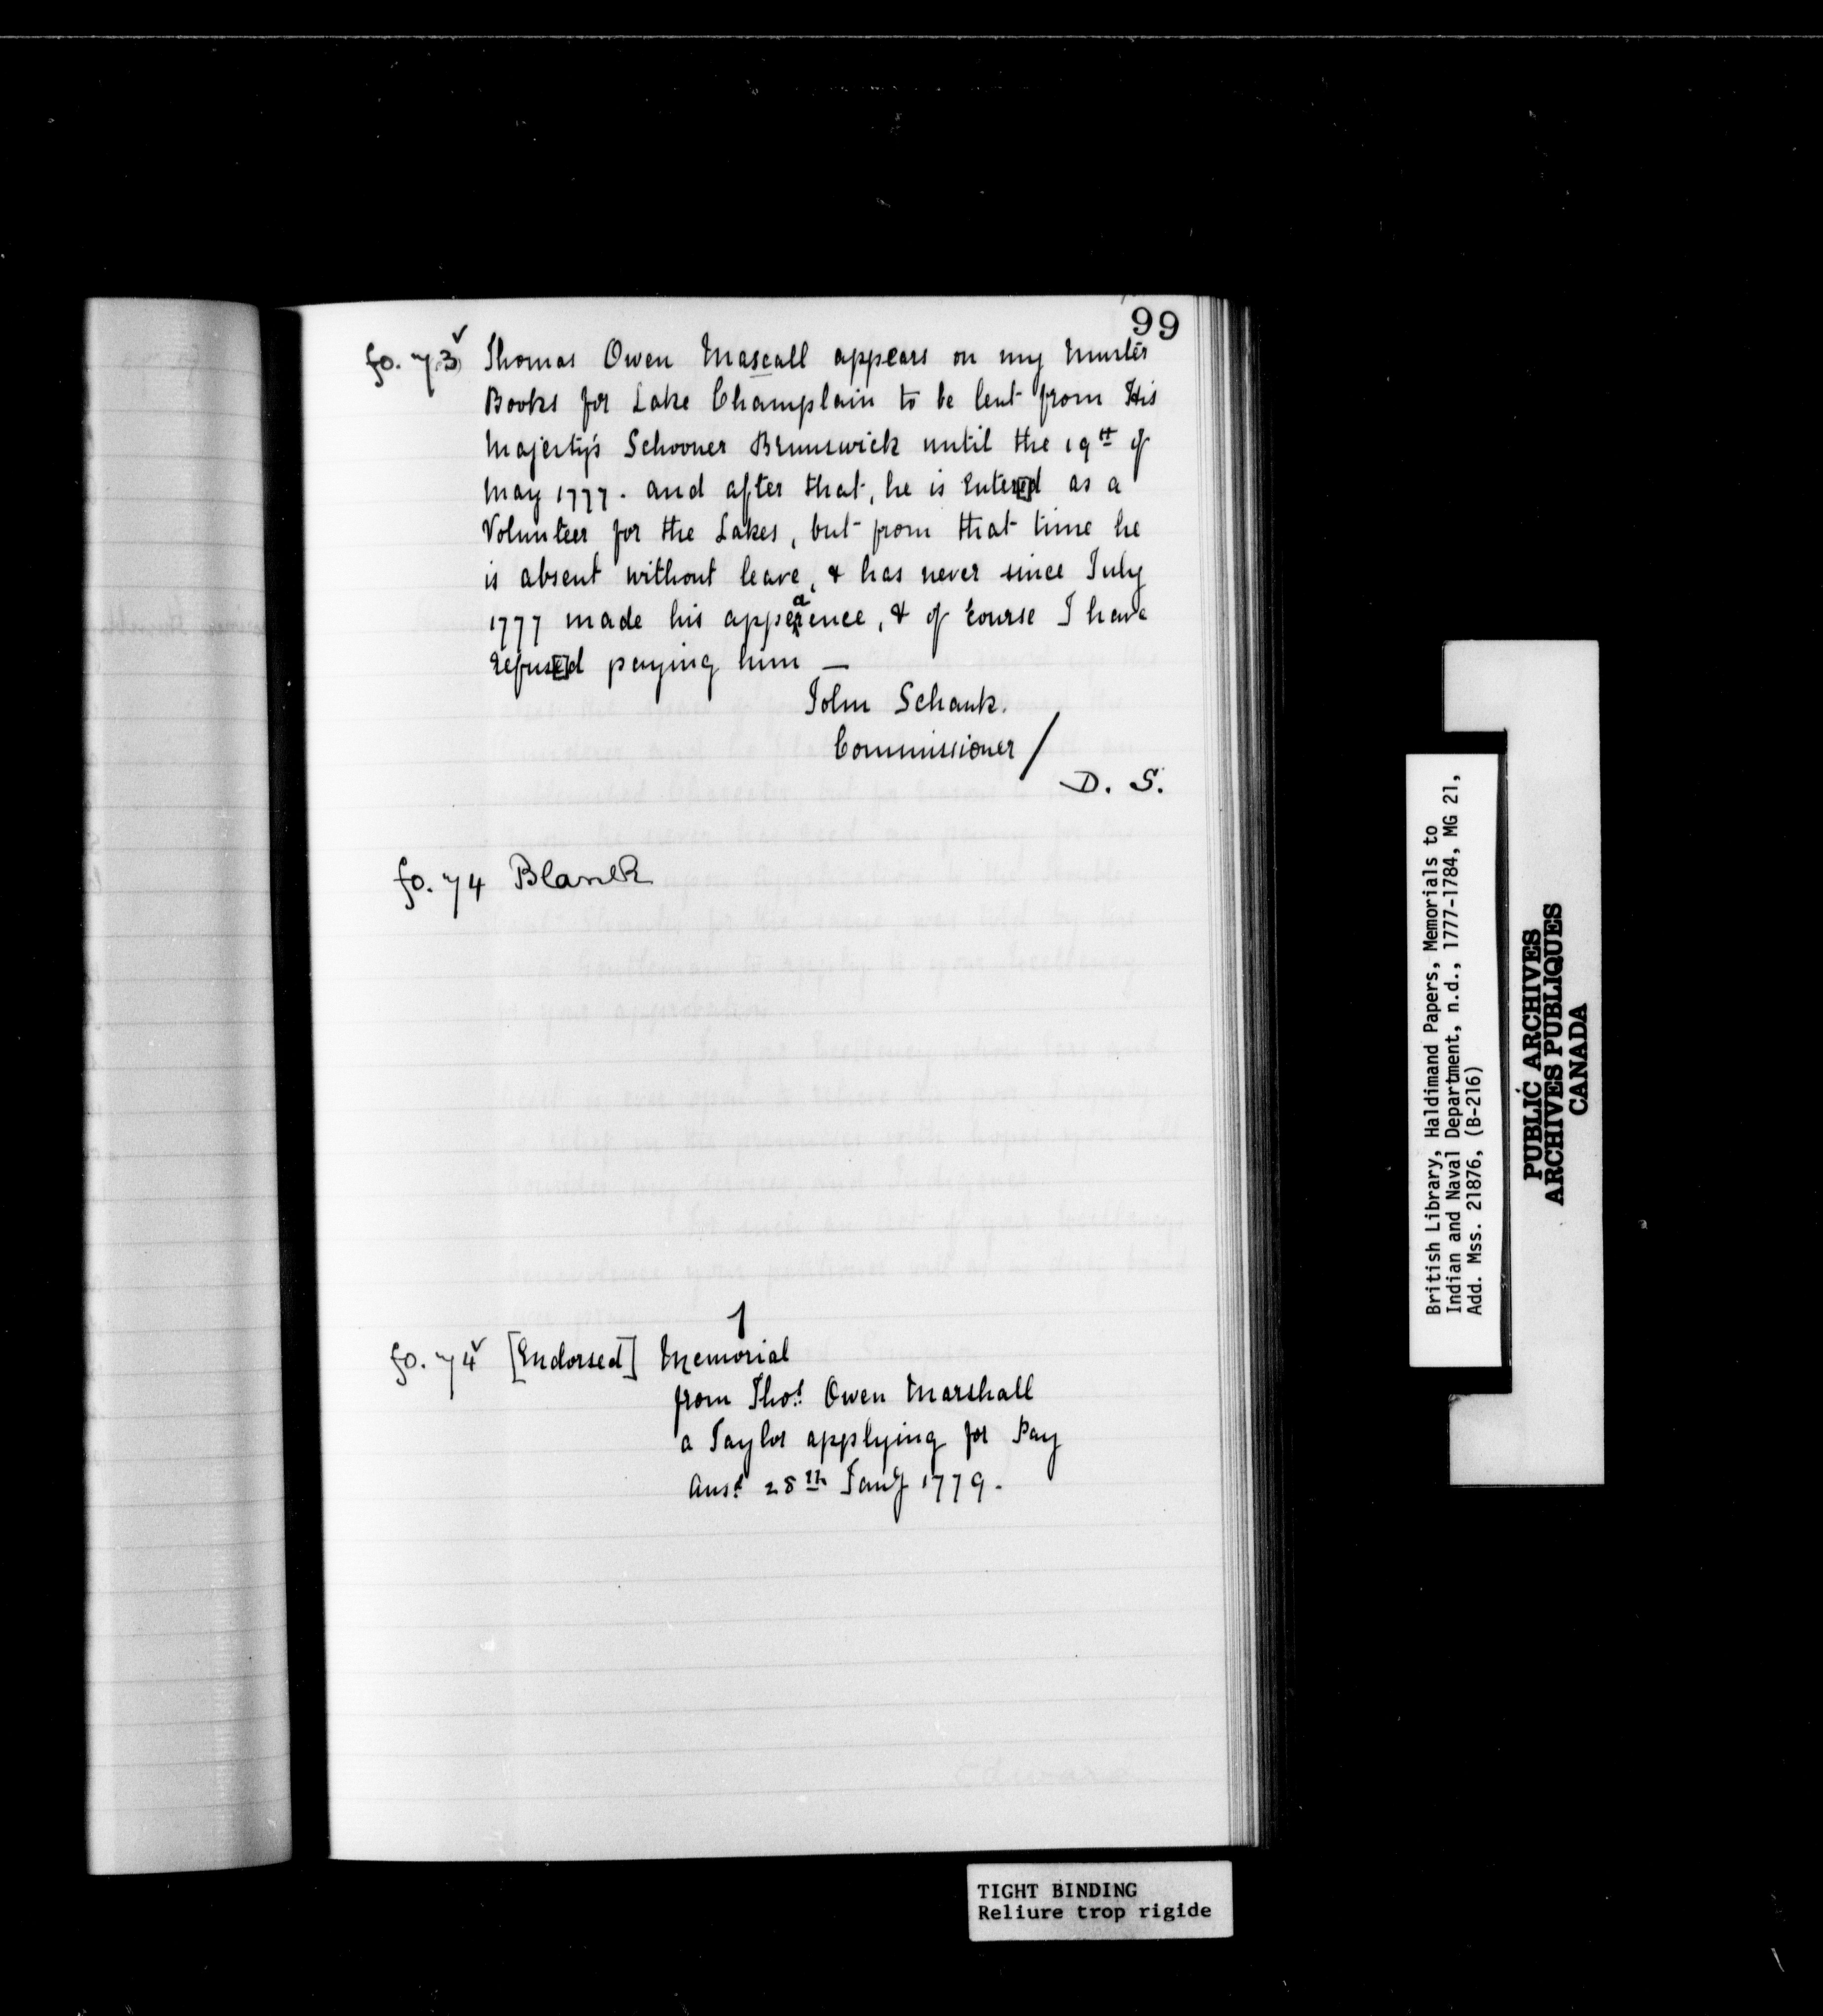 99
fo. 73v Thomas Owen Mascall appears on my Muster
Books for Lake Champlain to be lent from His
Majesty's Schooner Brunswick until the 19th of
May 1777. and after that, he is Enter[e]d as a
Volunteer for the Lakes, but from that time he
is absent without leave, & has never since July
1777 made his appearence, & of Course I have
refus[e]d paying him —
John Schank.
Commissioner /
D. S.
fo. 74 Blank
1
fo. 74v [Endorsed] Memorial
from Thos. Owen Marshall
a Taylor applying for Pay
Ansd. 28th Jany 1779.
British Library, Haldimand Papers, Memorials to
Indian and Naval Department, n.d., 1777-1784, MG 21,
Add. Mss. 21876, (B-216)
PUBLIC ARCHIVES
ARCHIVES PUBLIQUES
CANADA
TIGHT BINDING
Reliure trop rigide